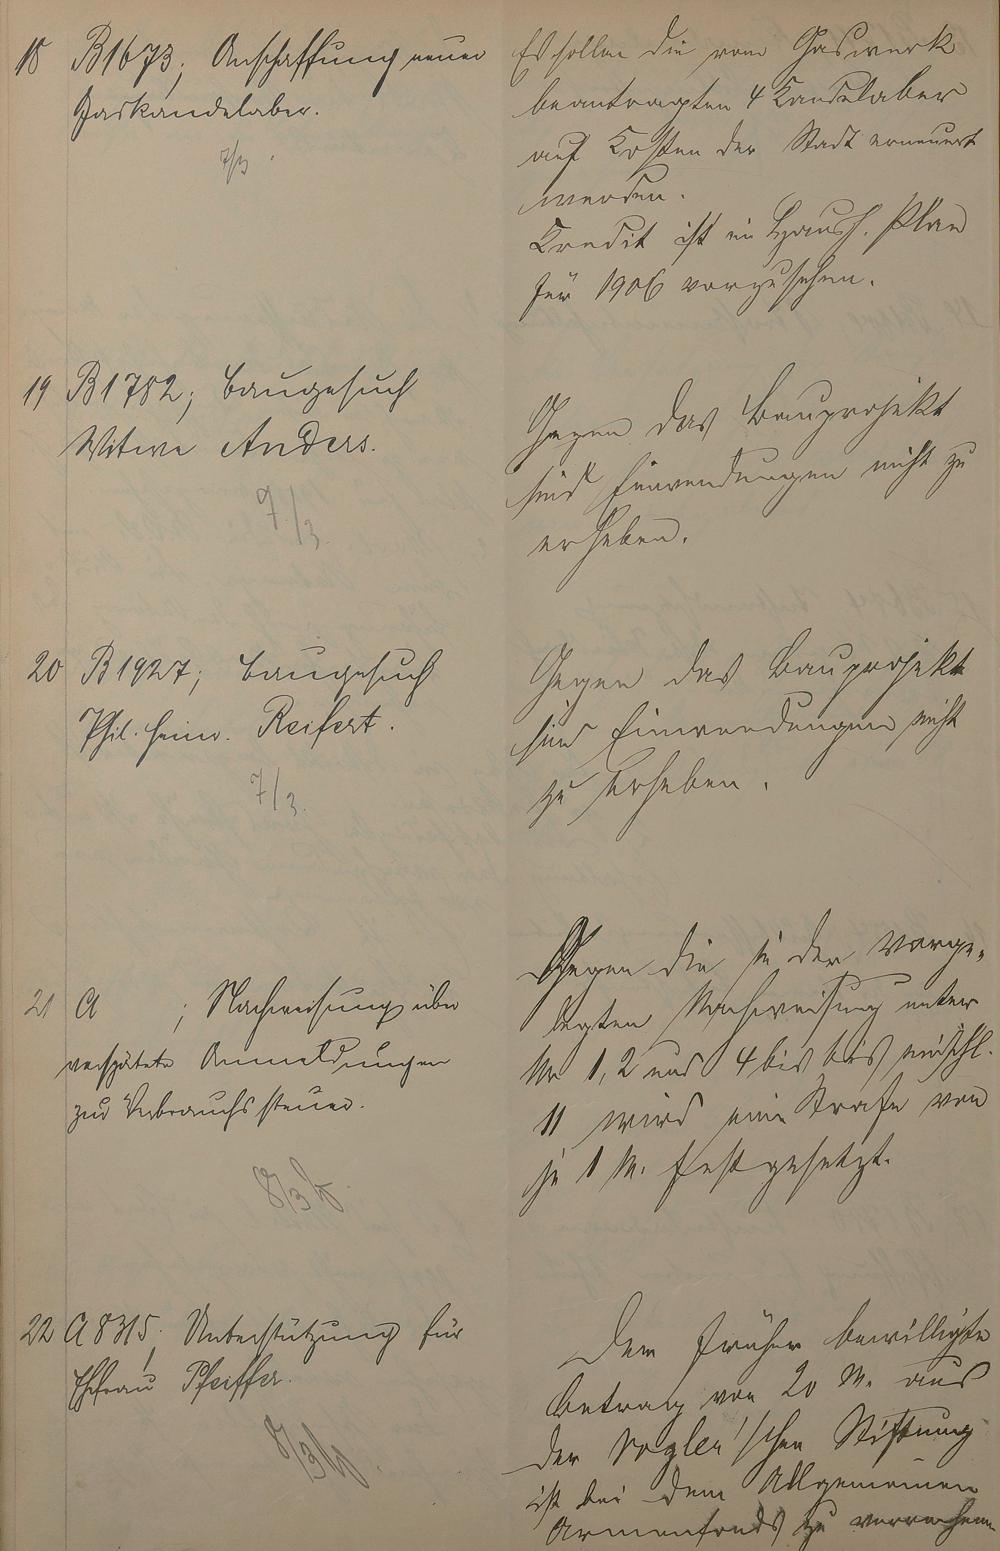 18 B1673; Anschaffung neuer
Gaskandelaber.
7/3
Es sollen die vom Gaswerk
beantragten 4 Kandelaber
auf Kosten der Stadt erneuert
werden.
Credit ist im Haush. Plan
für 1906 vorzusehen.
19 B1782; Baugesuch
Witwe Anders.
7/3.
Gegen das Bauprojekt
sind Einwendungen nicht zu
erheben.
20 B1927; Baugesuch
Phil. Heinr. Reifert.
7/3.
Gegen das Bauprojekt
sind Einwendungen nicht
zu erheben.
21 A ; Nachweisung über
verspätete Anmeldungen
zur Verbrauchssteuer.
8/3
Gegen die in der vorge-
legten Nachweisung unter
Nr 1, 2 und 4 bis bis einschl.
11 wird eine Strafe von
je 1 M. festgesetzt.
22 A 8315; Unterstützung für
Ehefrau Pfeiffer.
8/3
Der früher bewilligte
Betrag von 20 M. aus
der Vogler'schen Stiftung
ist bei dem Allgemeinen
Armenfonds zu